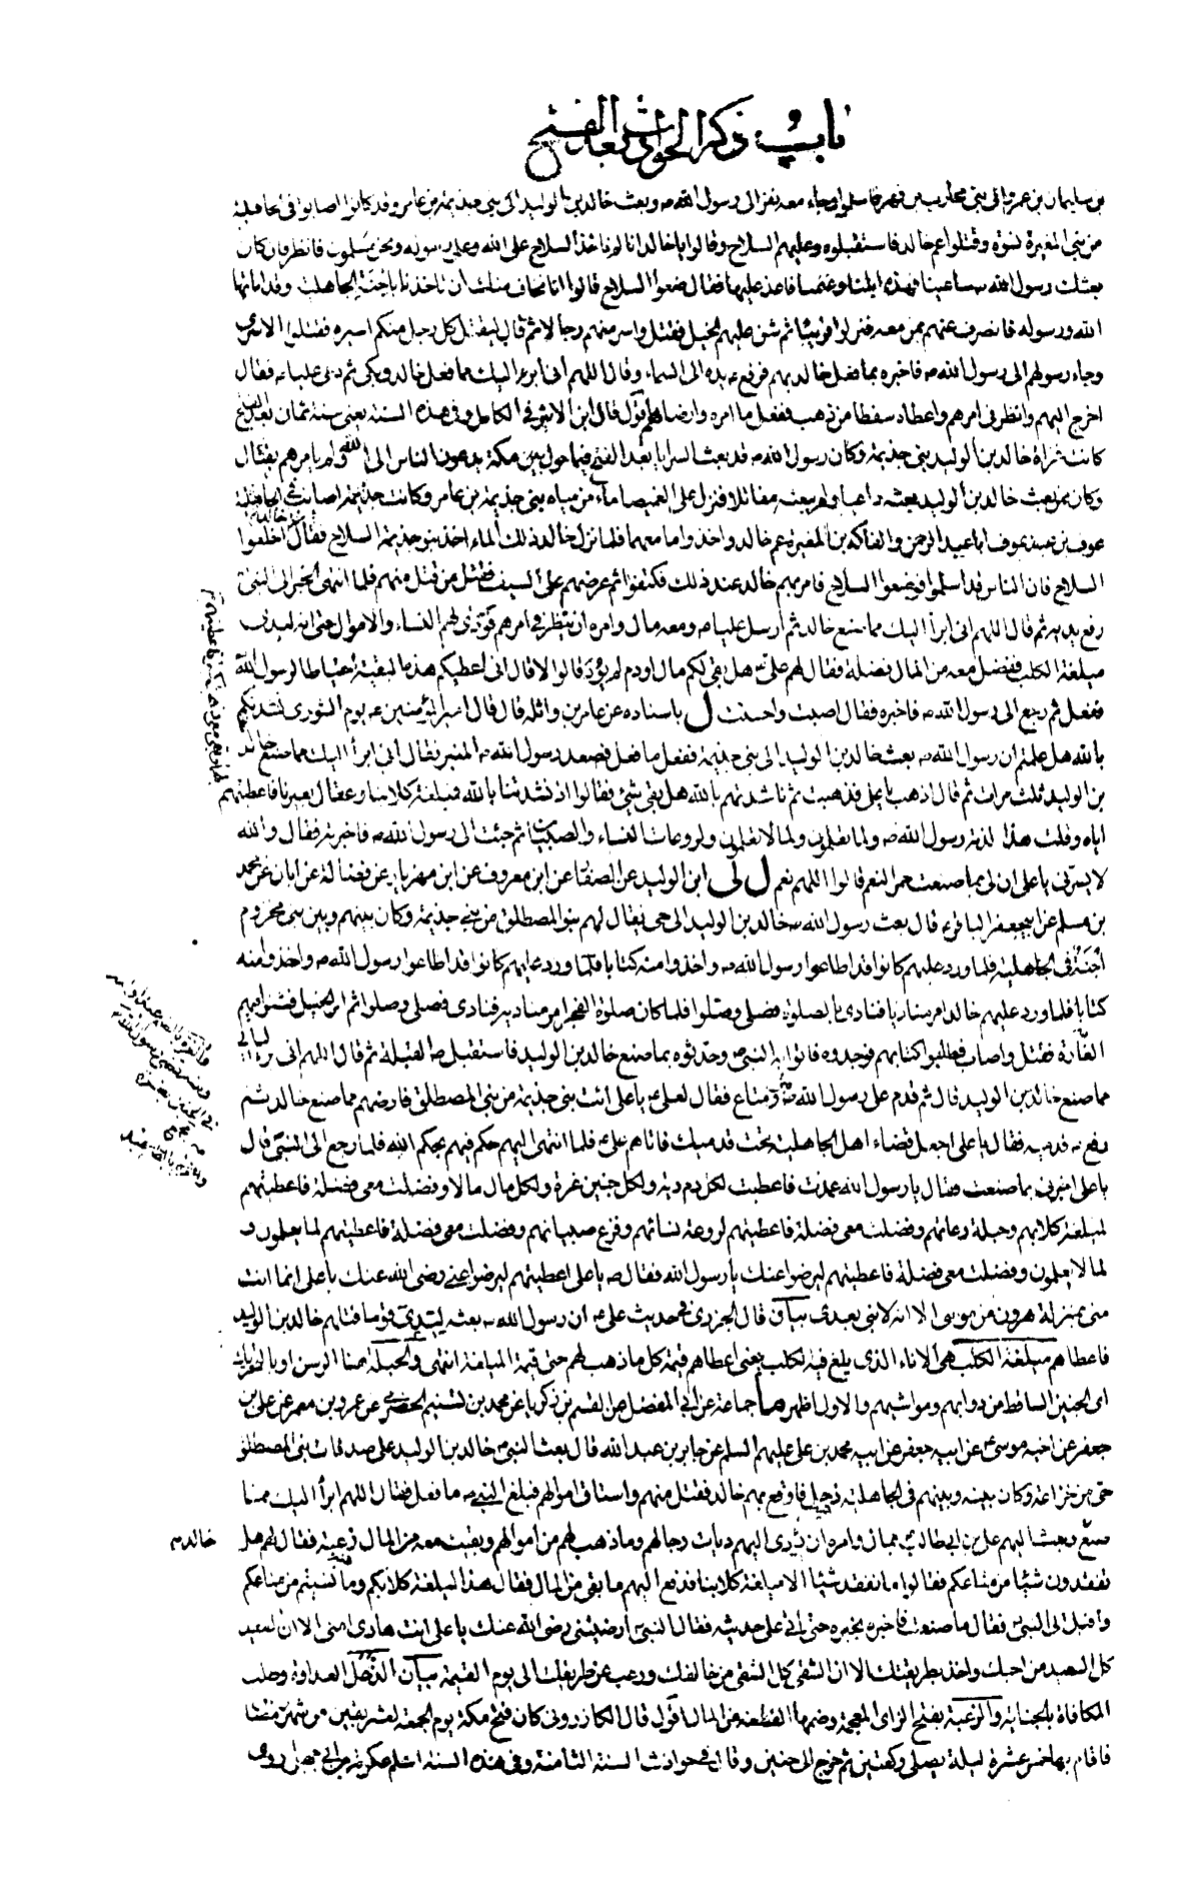 باب ذكر الحوادث بعد الفتح
بن سليمان بن عمرو الى بني محارب بن فهر فاسلموا وجاء معه نفر الى رسول الله ص وبعث خالد بن الوليد الى بني جذيمة بن عامر وقد كانوا اصابوا في الجاهلية
من بني المغيرة نسوة وقتلوا عم خالد فاستقبلوه وعليهم السلاح وقالوا يا خالد انا لم ناخذ السلاح على الله وعلى رسوله ونحن مسلمون فانظر فان كان
بعثك رسول الله ص ساعيا فهذه ابلنا وغنمنا فاغد عليها فقال ضعوا السلاح قالوا انا نخاف منك ان تاخذنا باحنة الجاهلية وقد اماتها
الله ورسوله فانصرف عنهم بمن معه فنزلوا قريبا ثم شن عليهم الخيل فقتل واسر منهم رجالا ثم قال ليقتل كل رجل منكم اسيره فقتلوا الاسرى
وجاء رسولهم الى رسول الله ص فاخبره بما فعل خالد بهم فرفع ع يده الى السماء وقال اللهم اني ابرء اليك مما فعل خالد وبكى ثم دعى عليا ع فقال
اخرج اليهم وانظر في امرهم واعطاه سفطا من ذهب ففعل ما امره وارضاهم اقول قال ابن الاثير في الكامل وفي هذه السنة يعني سنة ثمان بعد الفتح
كانت غزاة خالد بن الوليد بني جذيمة وكان رسول الله ص قد بعث السرايا بعد الفتح فيما حول مكة يدعون الناس الى الله ولم يامرهم بقتال
وكان ممن بعث خالد بن الوليد بعثه داعيا ولم يبعثه مقاتلا فنزل على الغميصا ماء من مياه بني جذيمة بن عامر وكانت جذيمة اصابت في الجاهلية
عوف بن عبد عوف ابا عبد الرحمن والفاكه بن المغيرة عم خالد واخذوا ما معهما فلما نزل خالد ذلك الماء اخذ بنو جذيمة السلاح فقال اخلعوا
السلاح فان الناس قد اسلموا فوضعوا السلاح فامر بهم خالد عند ذلك فكتفوا ثم عرضهم على السيف فقتل من قتل منهم فلما انتهى الخبر الى النبي
رفع يديه ثم قال اللهم اني ابرأ اليك مما صنع خالد ثم ارسل عليا ع ومعه مال وامره ان ينظر في امرهم فودى لهم النساء والاموال حتى انه ليدي
ميلغة الكلب ففضل معه من المال فضلة فقال لهم علي ع هل بقي لكم مال او دم لم يؤد قالوا لا قال اني اعطيكم هذه البقية احتياطا لرسول الله
ففعل ثم رجع الى رسول الله ص فاخبره فقال اصبت واحسنت ل باسناده عن عامر بن واثلة قال قال امير المؤمنين ع يوم الشورى نشدتكم
بالله هل علمتم ان رسول الله ص بعث خالد بن الوليد الى بني جذيمة ففعل ما فعل فصعد رسول الله ص المنبر فقال اني ابرأ اليك مما صنع خالد
بن الوليد ثلث مرات ثم قال اذهب يا علي فذهبت ثم ناشدتهم بالله هل بقي شيء فقالوا اذ نشدتنا بالله فميلغة كلابنا وعقال بعيرنا فاعطيتهم
اياه وقلت هذا لذمة رسول الله ص ولما تعلمون ولما لا تعلمون ولروعات النساء والصبيان ثم جئت الى رسول الله ص فاخبرته فقال والله
لا يسرني يا علي ان لي بما صنعت حمر النعم قالوا اللهم نعم ل لى ابن الوليد عن الصفار عن ابن معروف عن ابن مهزيار عن فضالة عن ابان عن محمد
بن مسلم عن ابي جعفر الباقر ع قال بعث رسول الله ص خالد بن الوليد الى حي يقال لهم بنو المصطلق من بني جذيمة وكان بينهم وبين بني مخزوم
احنة في الجاهلية فلما ورد عليهم كانوا قد اطاعوا رسول الله ص واخذوا منه كتابا فلما ورد عليهم كانوا قد اطاعوا رسول الله ص واخذوا منه
كتابا فلما ورد عليهم خالد امر مناديا فنادى بالصلوة فصلى وصلوا فلما كان صلوة الفجر امر مناديه فنادى فصلى وصلوا ثم امر الخيل فشنوا فيهم
الغارة فقتل واصاب فطلبوا كتابهم فوجدوه فاتوا به النبي ص وحدثوه بما صنع خالد بن الوليد فاستقبل ص القبلة ثم قال اللهم اني ابرأ اليك
مما صنع خالد بن الوليد قال ثم قدم على رسول الله ص ومتاع فقال لعلي ع يا علي ائت بني جذيمة من بني المصطلق فارضهم مما صنع خالد ثم
رفع ص قدميه فقال يا علي اجعل قضاء اهل الجاهلية تحت قدميك فاتاهم علي ع فلما انتهى اليهم حكم فيهم بحكم الله فلما رجع الى النبي ص قال
يا علي اخبرني بما صنعت فقال يا رسول الله عمدت فاعطيت لكل دم دية ولكل جنين غرة ولكل مال مالا وفضلت معي فضلة فاعطيتهم
لميلغة كلابهم وحبلة رعاتهم وفضلت معي فضلة فاعطيتهم لروعة نسائهم وفزع صبيانهم وفضلت معي فضلة فاعطيتهم لما يعلمون و
لما لا يعلمون وفضلت معي فضلة فاعطيتهم ليرضوا عنك يا رسول الله فقال ص يا علي اعطيتهم ليرضوا عني رضي الله عنك يا علي انما انت
مني بمنزلة هرون من موسى الا انه لا نبي بعدي بيان قال الجزري في حديث علي ع ان رسول الله ص بعثه ليدي قوما قتلهم خالد بن الوليد
فاعطاهم ميلغة الكلب هي الاناء الذي يلغ فيه الكلب يعني اعطاهم قيمة كل ما ذهب لهم حتى قيمة الميلغة انتهى والحبلة هنا الرسن او بالتحريك
اي الجنين الساقط من دوابهم ومواشيهم والاول اظهر ما جماعة عن ابي المفضل عن القسم بن زكريا عن محمد بن تسنيم الحضرمي عن عمرو بن معمر عن علي بن
جعفر عن اخيه موسى ع عن ابيه جعفر عن ابيه محمد بن علي عليهم السلم عن جابر بن عبد الله قال بعث النبي ص خالد بن الوليد على صدقات بني المصطلق
حي من خزاعة وكان بينه وبينهم في الجاهلية ذحل فاوقع بهم خالد فقتل منهم واستاق اموالهم فبلغ النبي ص ما فعل فقال اللهم ابرأ اليك مما
صنع وبعث اليهم علي بن ابي طالب ع بمال وامره ان يؤدي اليهم ديات رجالهم وما ذهب لهم من اموالهم وبقيت معه من المال زعبة فقال لهم هل
خالد
تفقدون شيئا من متاعكم فقالوا ما نفقد شيئا الا ميلغة كلابنا فدفع اليهم ما بقي من المال فقال هذا لميلغة كلابكم وما نسيتم من متاعكم
واقبل الى النبي ص فقال ما صنعت فاخبره بخبره حتى اتى على حديثه فقال النبي ص ارضيتني رضي الله عنك يا علي انت هادي امتي الا ان السعيد
كل السعيد من احبك واخذ بطريقتك الا ان الشقي كل الشقي من خالفك ورغب عن طريقك الى يوم القيمة بيان الذحل العداوة وطلب
المكافاة بالجناية والزعبة بفتح الزاي المعجمة وضمها القطعة من المال اقول قال الكازروني كان فتح مكة يوم الجمعة لعشر بقين من شهر رمضان
فاقام بها خمس عشرة ليلة يصلي ركعتين ثم خرج الى حنين وقال في حوادث السنة الثامنة وفي هذه السنة اسلم عكرمة بن ابي جهل روى